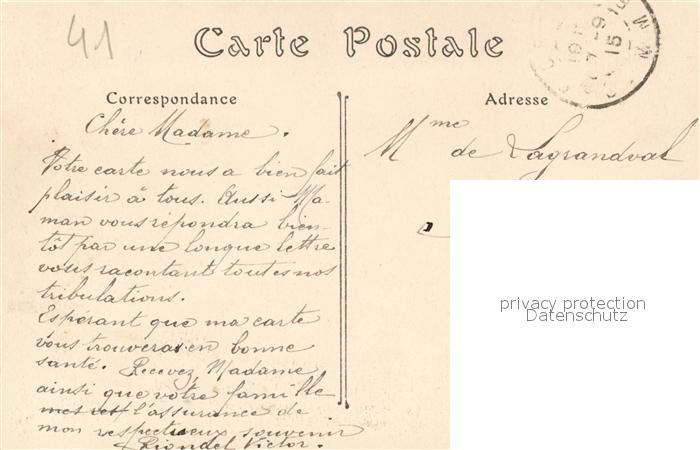 41
Carte Postale
Correspondance
Adresse
Chère Madame.
Votre carte nous a bien fait
plaisir à tous. Aussi Ma-
man vous répondra bien-
tôt par une longue lettre
vous racontant toutes nos
tribulations.
Espérant que ma carte
vous trouvera en bonne
santé. Recevez Madame
ainsi que votre famille
l'assurance de
mon respectueux souvenir
Riondel Victor.
Mme
de Lagrandval
privacy protection
Datenschutz